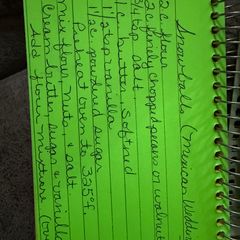 Snowballs (Mexican Wedding
2c flour
2c finely chopped pecans or walnut
1/4 tsp salt
1c butter softned
1 1/2 tsp vanilla
1/2c powdered sugar
Preheat oven to 325°f
mix flour, nuts, & salt.
Cream butter, sugar & vanilla
Add flour mixture